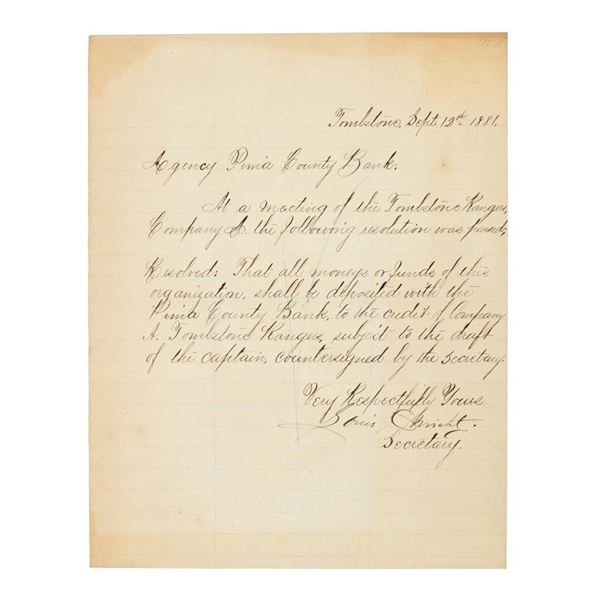 Tombstone, Sept. 12th. 1881.
Agency Pima County Bank.
At a meeting of the Tombstone Rangers,
Company A the following resolution was passed;
Resolved: That all moneys or funds of this
organization, shall be deposited with the
Pima County Bank, to the credit of Company
A. Tombstone Rangers, subject to the draft
of the captain, countersigned by the Secretary.
Very Respectfully Yours
Secretary.